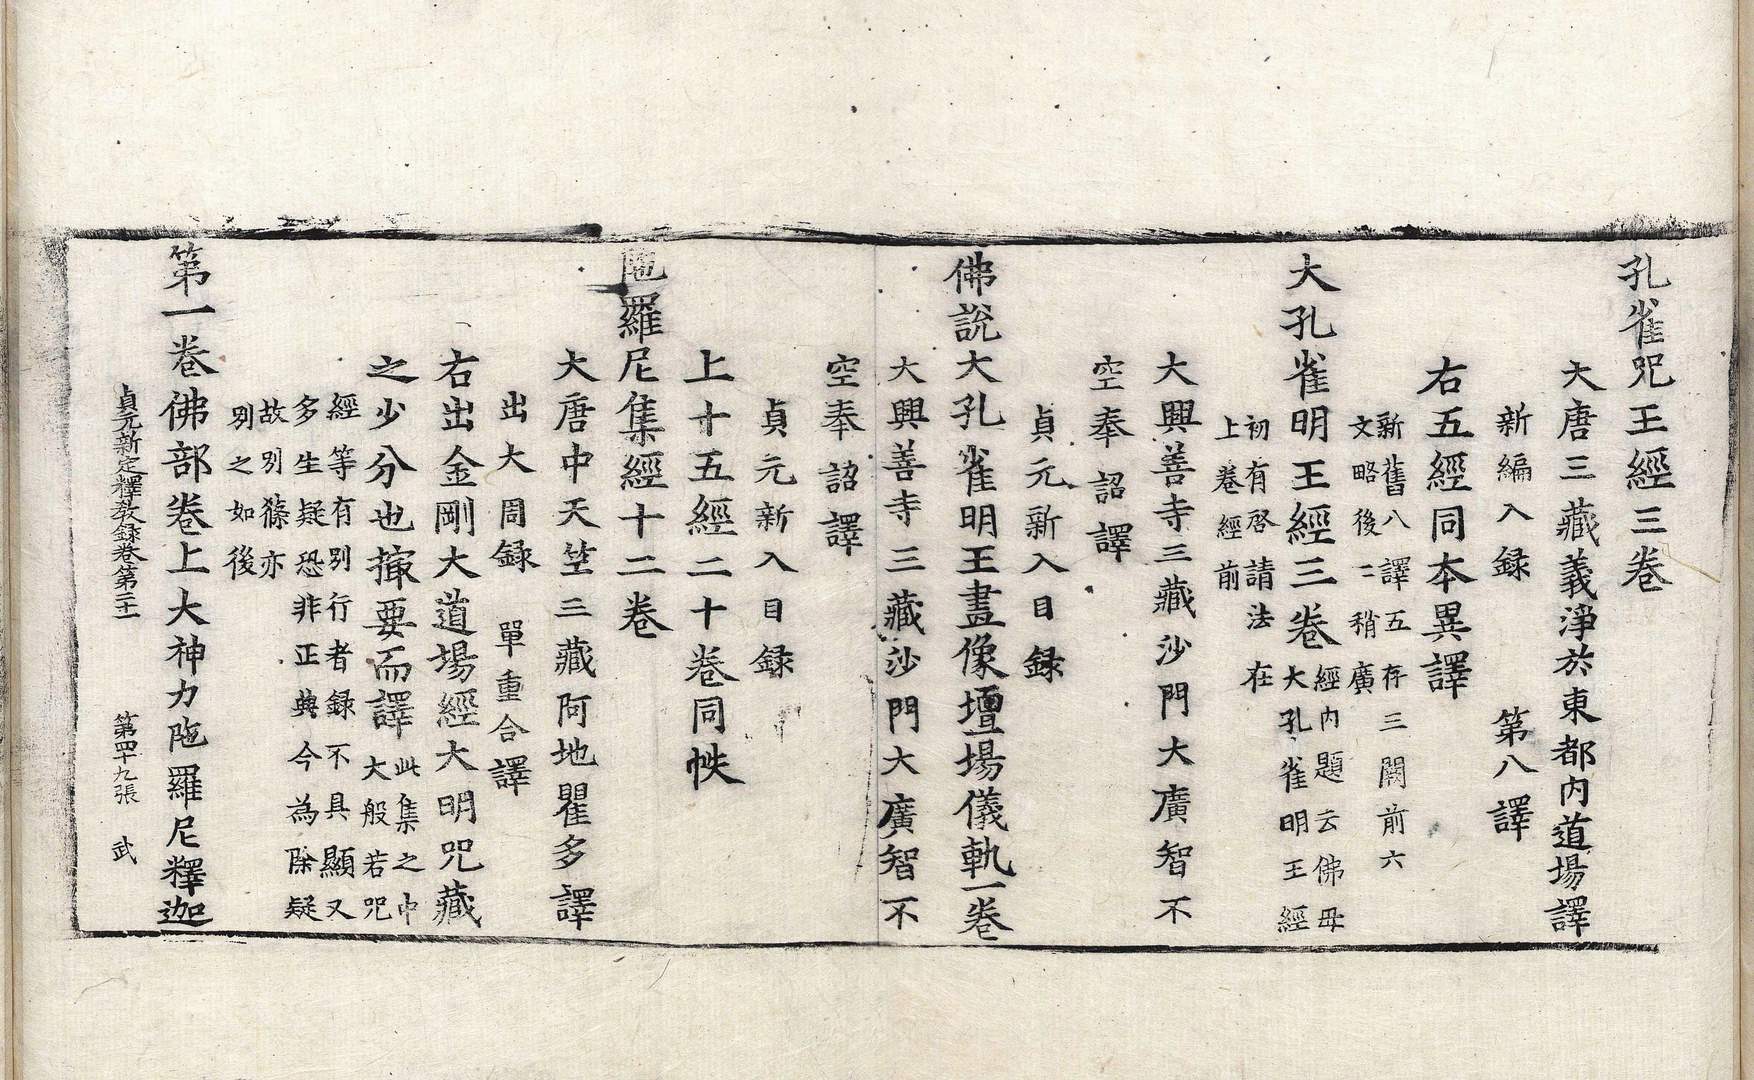 孔雀咒王經三卷
大唐三藏義淨於東都内道場譯
新編入録　第八譯
右五經同本異譯
新舊八譯五存三闕前六
文略後二稍廣
大孔雀明王經三卷
經内題云佛母
大孔雀明王經
初有啓請法在
上卷經前
大興善寺三藏沙門大廣智不
空奉詔譯
貞元新入目録
佛說大孔雀明王畫像壇場儀軌一卷
大興善寺三藏沙門大廣智不
空奉詔譯
貞元新入目録
上十五經二十卷同帙
陁羅尼集經十二卷
大唐中天竺三藏阿地瞿多譯
出大周録　單重合譯
右出金剛大道場經大明咒藏
之少分也撮要而譯
此集之中
大般若咒
經等有別行者録不具顯又
多生疑恐非正典今為除疑
故別條亦
別之如後
第一卷佛部卷上大神力陁羅尼釋迦
貞元新定釋教録卷第二十一　第四十九張　武